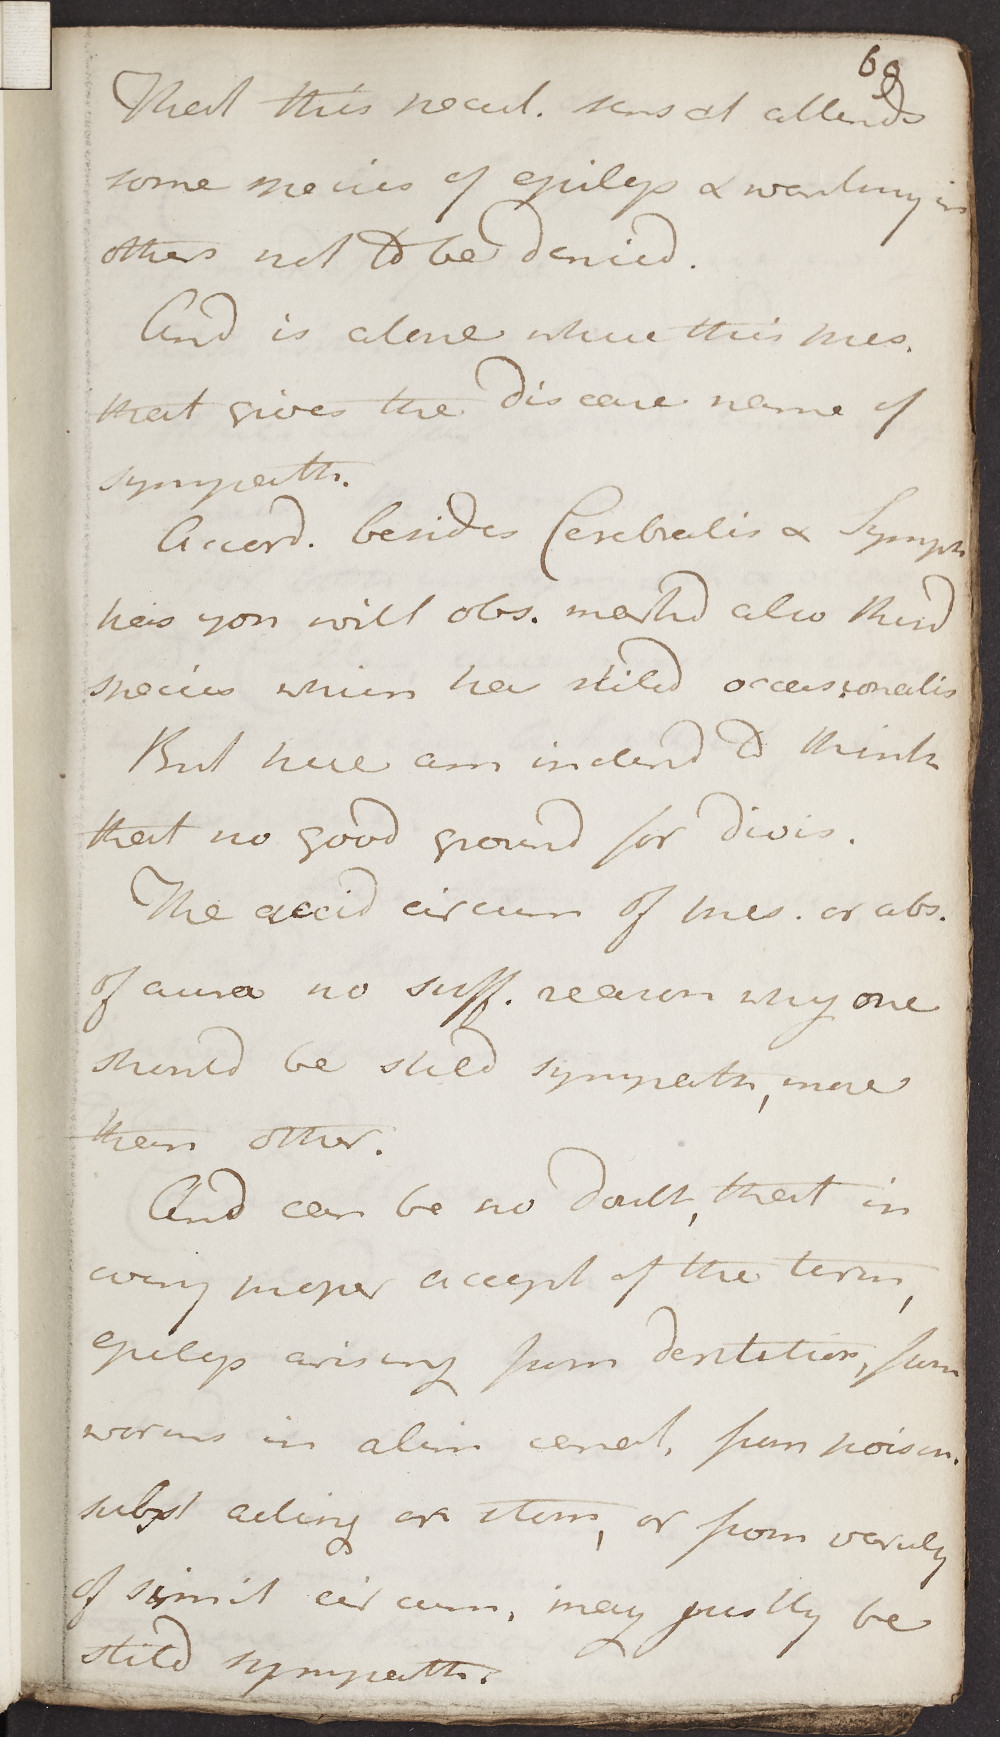 69
That this pecul. sensat attends
some species of epileps & wanting in
others not to be denied.
And is alone where this pres.
that gives the disease name of
sympath.
Accord. besides Cerebralis & Symph
has you will obs. markd also third
species which has stiled occasionalis
But here am inclend to think
that no good ground for divis.
The accid circum of pres. or abs.
of aura no suff. reason why one
should be stiled sympath, more
than other.
And can be no doubt, that in
every proper accept of the term,
epileps arising from dentition, from
worms in alim canal, from poison.
subst acting on stom, or from variety
of simil circum, may justly be
stild sympath.